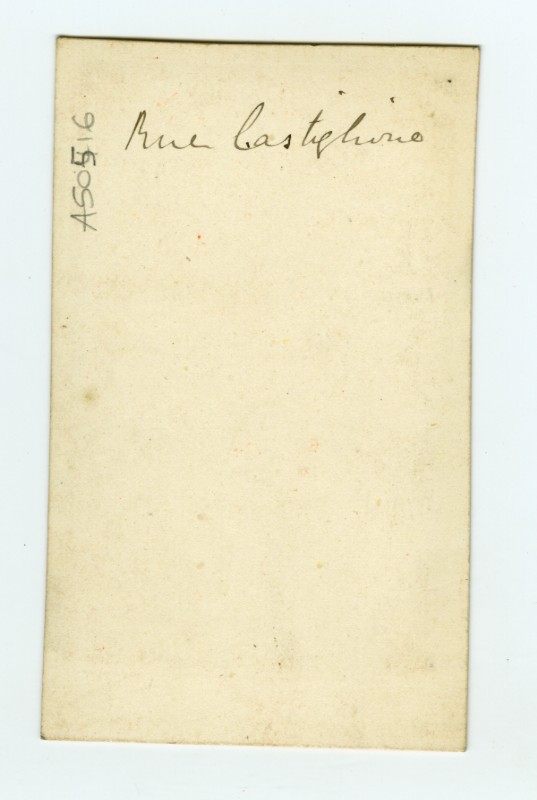 Rue Castiglione
A50516